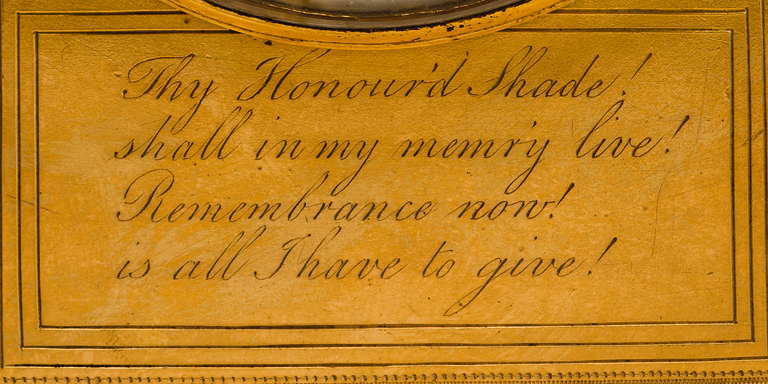 Thy Honour'd Shade!
shall in my mem'ry live!
Remembrance now!
is all I have to give!